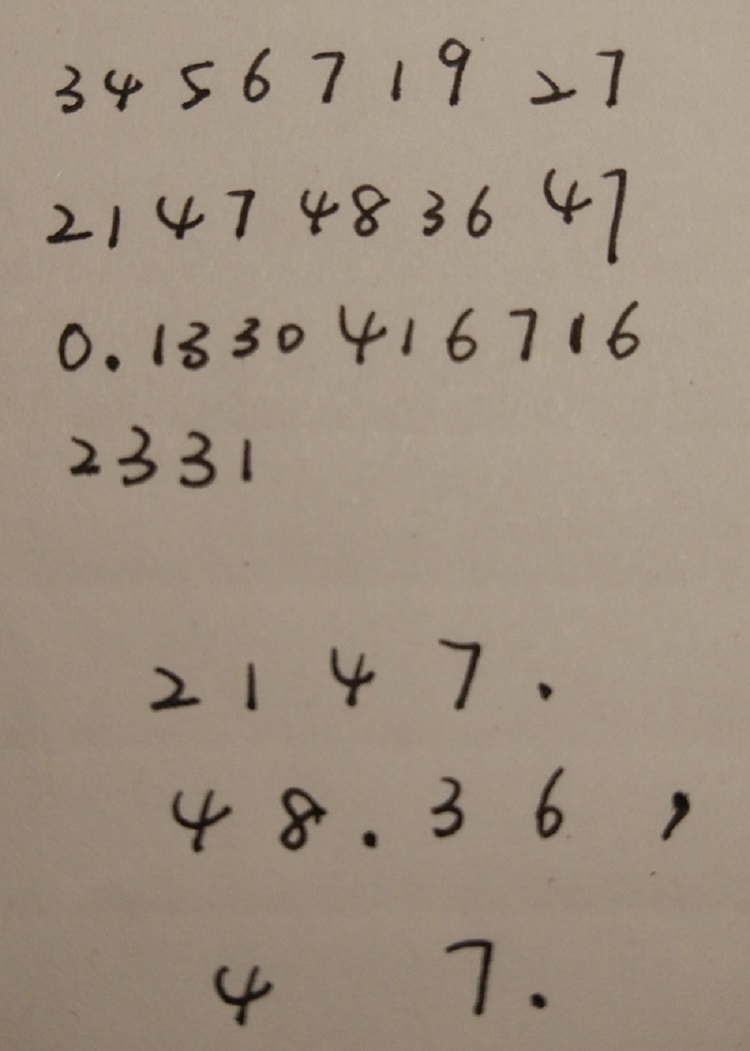 3 4 5 6 7 1 9 2 7
2 1 4 7 4 8 3 6 4 7
0.1330416716
2331
2 1 4 7 .
4 8 . 3 6 ,
4 7 .